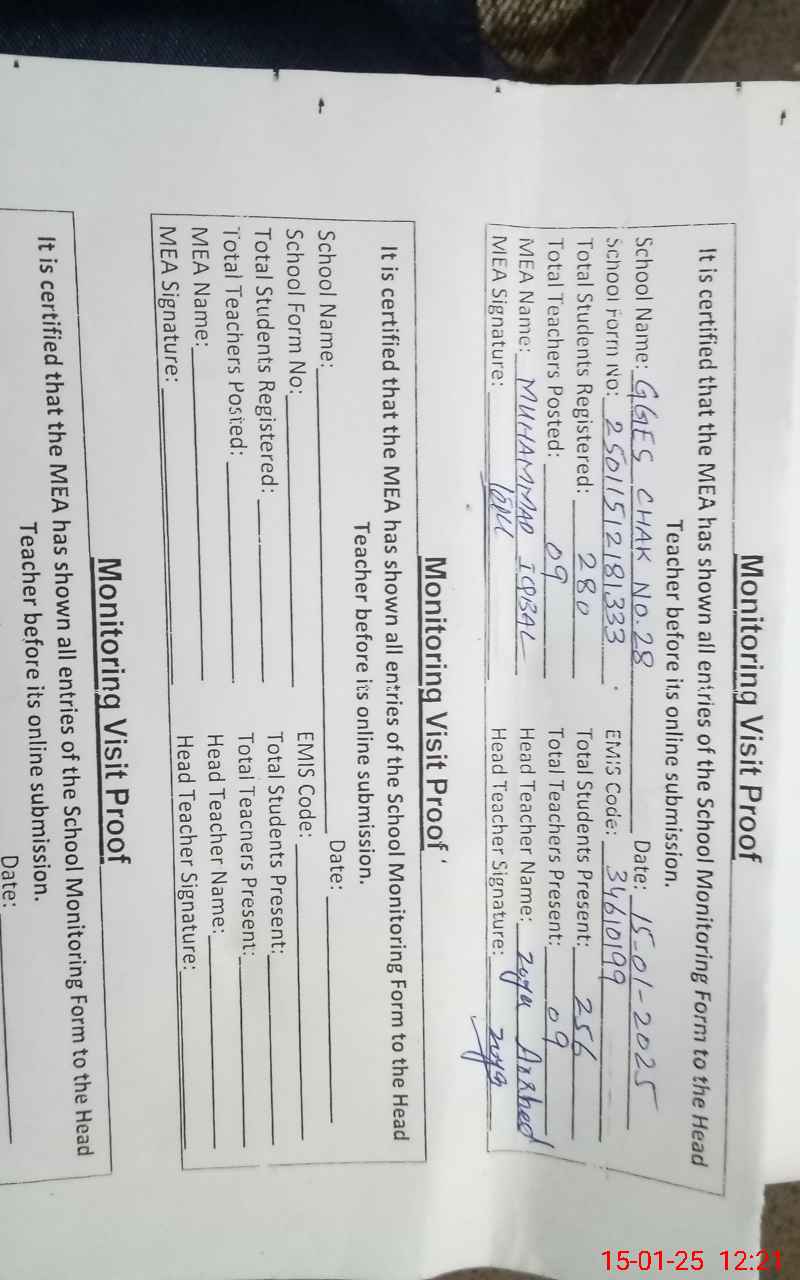 Monitoring Visit Proof
It is certified that the MEA has shown all entries of the School Monitoring Form to the Head
Teacher before its online submission.
School Name: GGES CHAK NO.28 Date: 15-01-2025
School Form No: 2501151218 1333 EMIS Code: 34610199
Total Students Registered: 280 Total Students Present: 256
Total Teachers Posted: 09 Total Teachers Present: 09
MEA Name: MUHAMMAD IQBAL Head Teacher Name: Zoya Arshed
MEA Signature: Head Teacher Signature: Zoya
Monitoring Visit Proof
It is certified that the MEA has shown all entries of the School Monitoring Form to the Head
Teacher before its online submission.
School Name: Date:
School Form No: EMIS Code:
Total Students Registered: Total Students Present:
Total Teachers Posted: Total Teachers Present:
MEA Name: Head Teacher Name:
MEA Signature: Head Teacher Signature:
Monitoring Visit Proof
It is certified that the MEA has shown all entries of the School Monitoring Form to the Head
Teacher before its online submission.
Date:
15-01-25 12:21